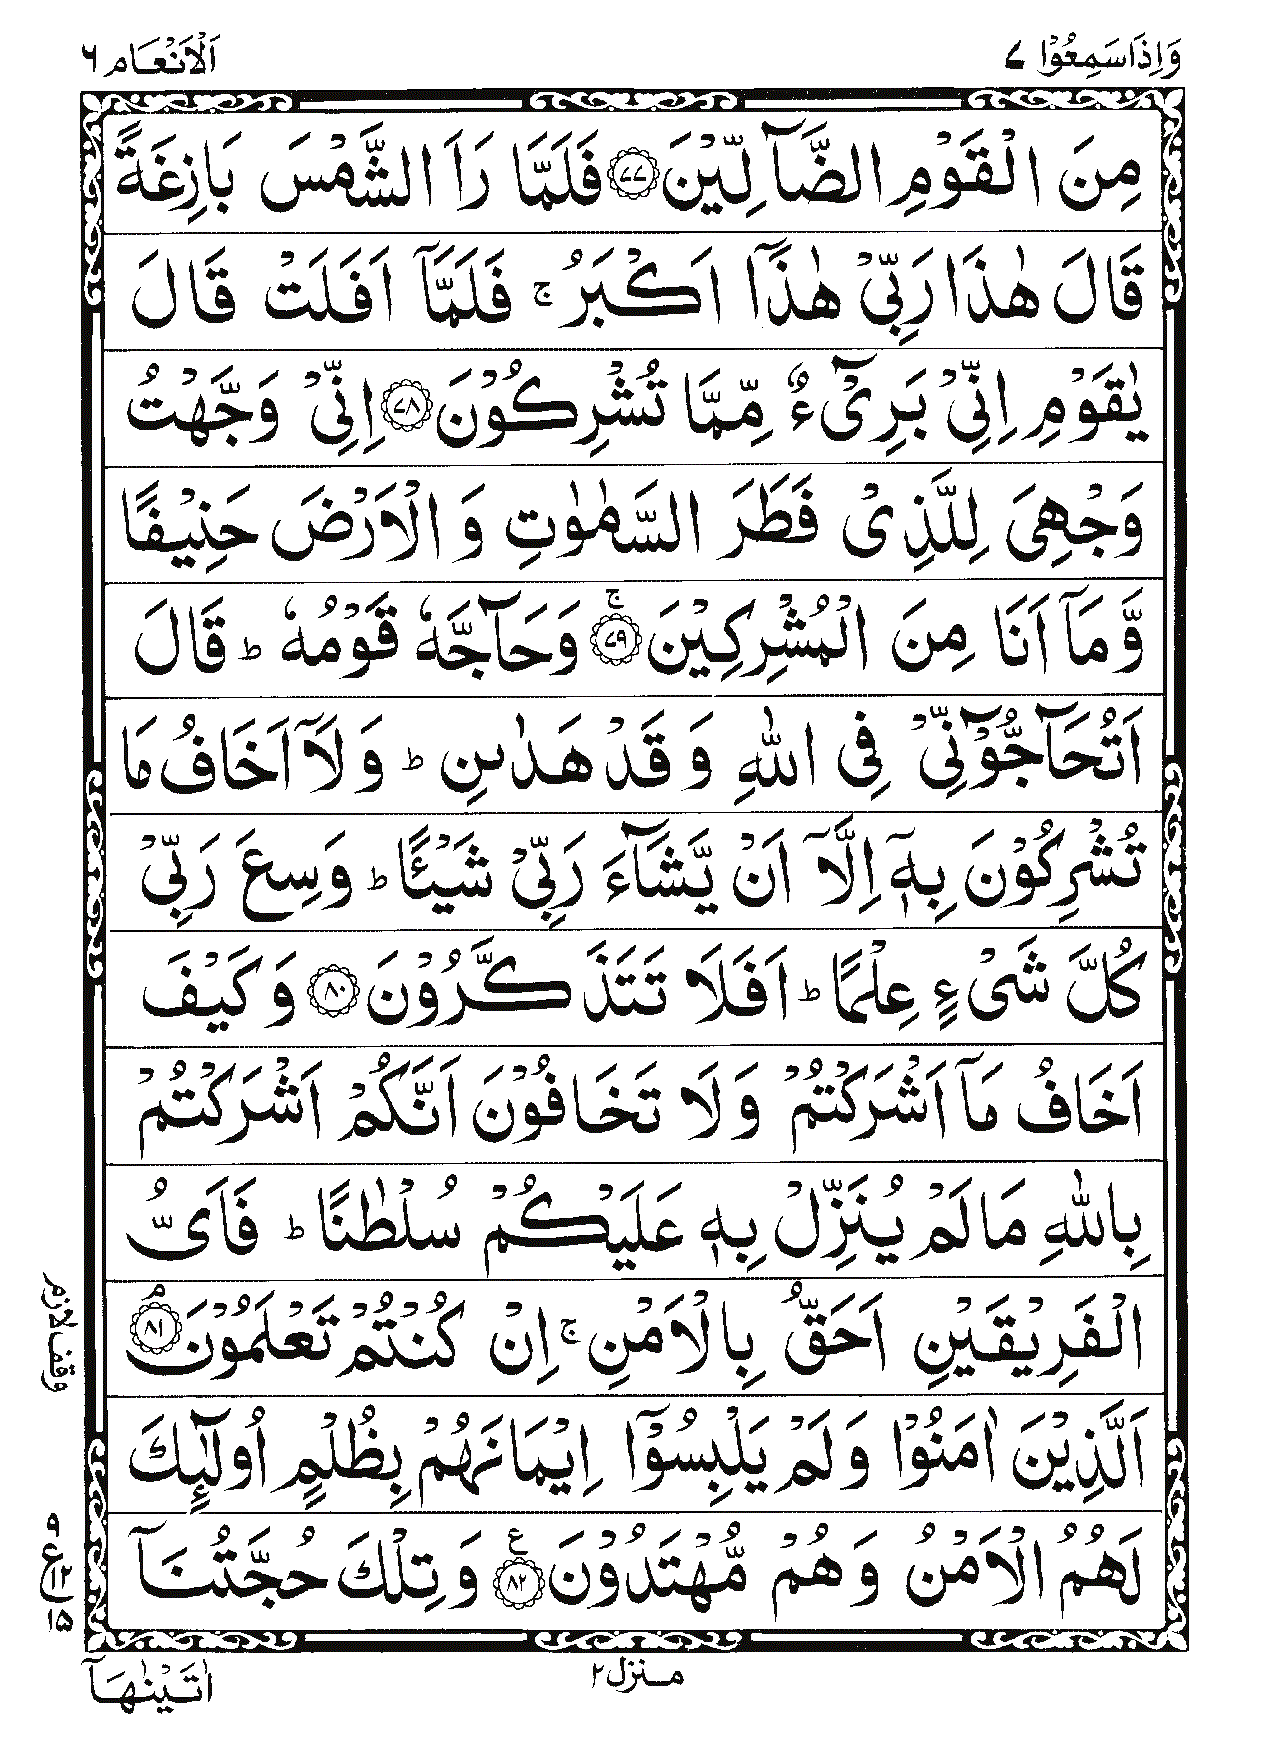 وَاِذَاسَمِعُوْا ٧
اَلْاَنْعَام ٦
مِنَ الْقَوْمِ الضَّآلِّيْنَ ﴿٧٧﴾ فَلَمَّا رَاَ الشَّمْسَ بَازِغَةً
قَالَ هٰذَا رَبِّيْ هٰذَآ اَكْبَرُ ۚ فَلَمَّآ اَفَلَتْ قَالَ
يٰقَوْمِ اِنِّيْ بَرِيْٓءٌ مِّمَّا تُشْرِكُوْنَ ﴿٧٨﴾ اِنِّيْ وَجَّهْتُ
وَجْهِيَ لِلَّذِيْ فَطَرَ السَّمٰوٰتِ وَ الْاَرْضَ حَنِيْفًا
وَّمَآ اَنَا مِنَ الْمُشْرِكِيْنَ ۚ﴿٧٩﴾ وَحَآجَّهٗ قَوْمُهٗ ؕ قَالَ
اَتُحَآجُّوْٓنِّيْ فِي اللّٰهِ وَ قَدْ هَدٰىنِ ؕ وَ لَآ اَخَافُ مَا
تُشْرِكُوْنَ بِهٖٓ اِلَّآ اَنْ يَّشَآءَ رَبِّيْ شَيْـًٔا ؕ وَسِعَ رَبِّيْ
كُلَّ شَيْءٍ عِلْمًا ؕ اَفَلَا تَتَذَكَّرُوْنَ ﴿٨٠﴾ وَ كَيْفَ
اَخَافُ مَآ اَشْرَكْتُمْ وَ لَا تَخَافُوْنَ اَنَّكُمْ اَشْرَكْتُمْ
بِاللّٰهِ مَا لَمْ يُنَزِّلْ بِهٖ عَلَيْكُمْ سُلْطٰنًا ؕ فَاَيُّ
الْفَرِيْقَيْنِ اَحَقُّ بِالْاَمْنِ ۚ اِنْ كُنْتُمْ تَعْلَمُوْنَ ۘ﴿٨١﴾
وقف لازم
اَلَّذِيْنَ اٰمَنُوْا وَ لَمْ يَلْبِسُوْٓا اِيْمَانَهُمْ بِظُلْمٍ اُولٰٓئِكَ
لَهُمُ الْاَمْنُ وَ هُمْ مُّهْتَدُوْنَ ﴿٨٢﴾ ع وَ تِلْكَ حُجَّتُنَآ
٩
ع ١٢
١٥
منزل ٢
اٰتَيْنٰهَآ